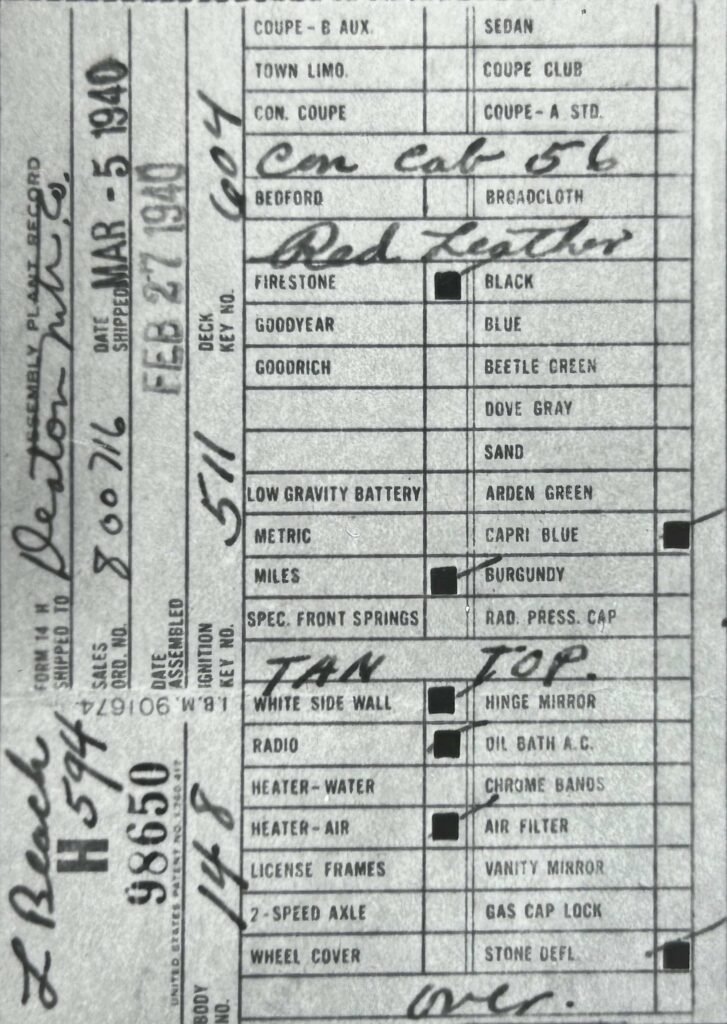 FORM 14 H ASSEMBLY PLANT RECORD
SHIPPED TO Deaton Mtr. Co.
SALES ORD. NO. 800716 DATE SHIPPED MAR - 5 1940
DATE ASSEMBLED FEB 27 1940
IGNITION KEY NO. 511 DECK KEY NO. 604
I.B.M. 901674
L Beach
H 594
98650
UNITED STATES PATENT NO. 1,780,417
BODY NO. 148
COUPE - B AUX. SEDAN
TOWN LIMO. COUPE CLUB
CON. COUPE COUPE - A STD.
Con Cab 56
BEDFORD BROADCLOTH
Red Leather
FIRESTONE BLACK
GOODYEAR BLUE
GOODRICH BEETLE GREEN
DOVE GRAY
SAND
LOW GRAVITY BATTERY ARDEN GREEN
METRIC CAPRI BLUE
MILES BURGUNDY
SPEC. FRONT SPRINGS RAD. PRESS. CAP
TAN TOP.
WHITE SIDE WALL HINGE MIRROR
RADIO OIL BATH A.C.
HEATER-WATER CHROME BANDS
HEATER-AIR AIR FILTER
LICENSE FRAMES VANITY MIRROR
2-SPEED AXLE GAS CAP LOCK
WHEEL COVER STONE DEFL.
over.